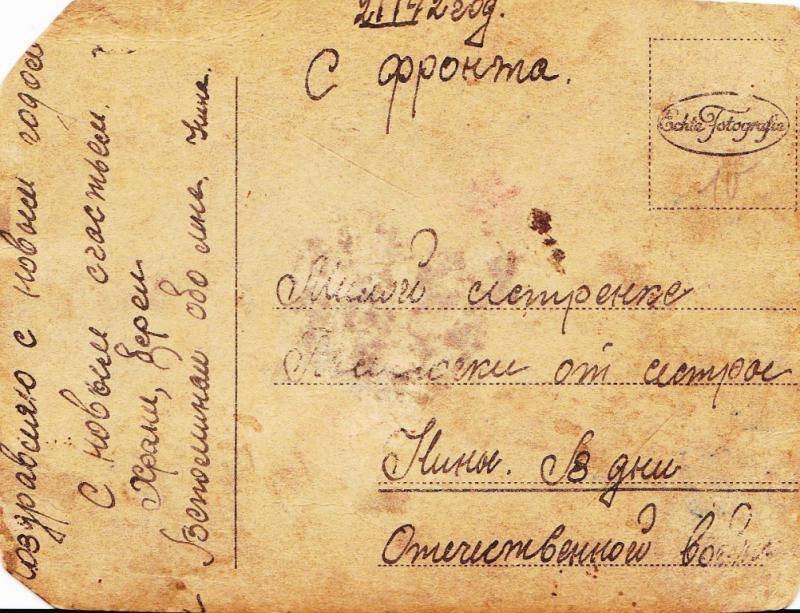 42 год.
С фронта.
Echte Fotografie
10
Милого сестренке
от сестры
Нины. В дни
Отечественной войны
оздравляю с новым годом
С новым счастьем.
Храни, Береги
Вспоминай обо мне. Нина.